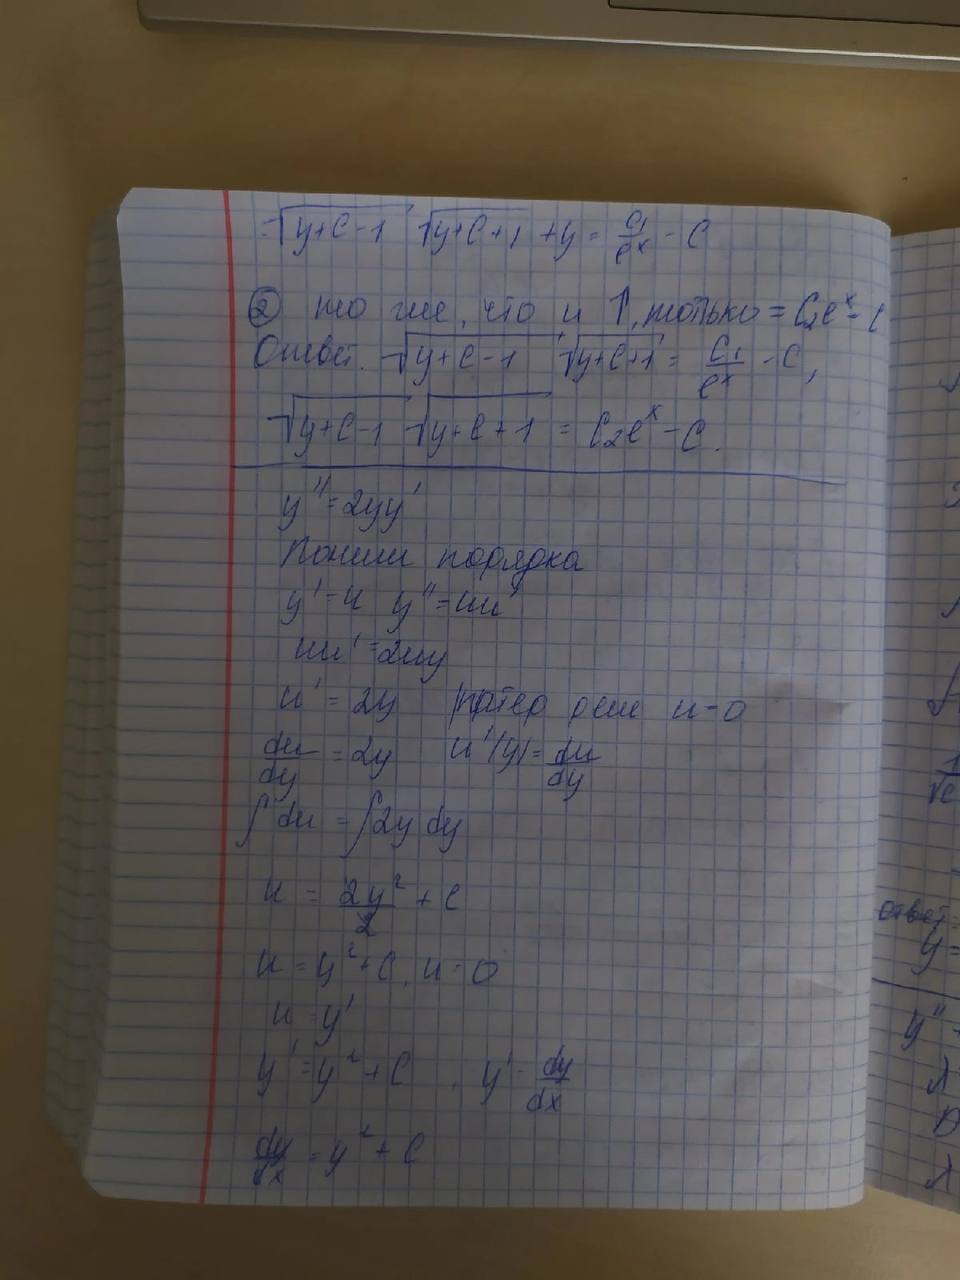 -√(y+C-1) √(y+C+1) + y = C₁/eˣ - C
② то же, что и 1, только = C₂eˣ - C
Ответ. -√(y+C-1) √(y+C+1) = C₁/eˣ - C,
-√(y+C-1) √(y+C+1) = C₂eˣ - C.
y'' = 2yy'
Пониж порядка
y' = u y'' = uu'
uu' = 2uy
u' = 2y потер реш u = 0
du/dy = 2y u'(y) = du/dy
∫ du = ∫ 2y dy
u = 2y²/2 + C
u = y² + C, u = 0
u = y'
y' = y² + C , y' = dy/dx
dy/dx = y² + C
ответ:
y =
y'' +
λ
D
λ